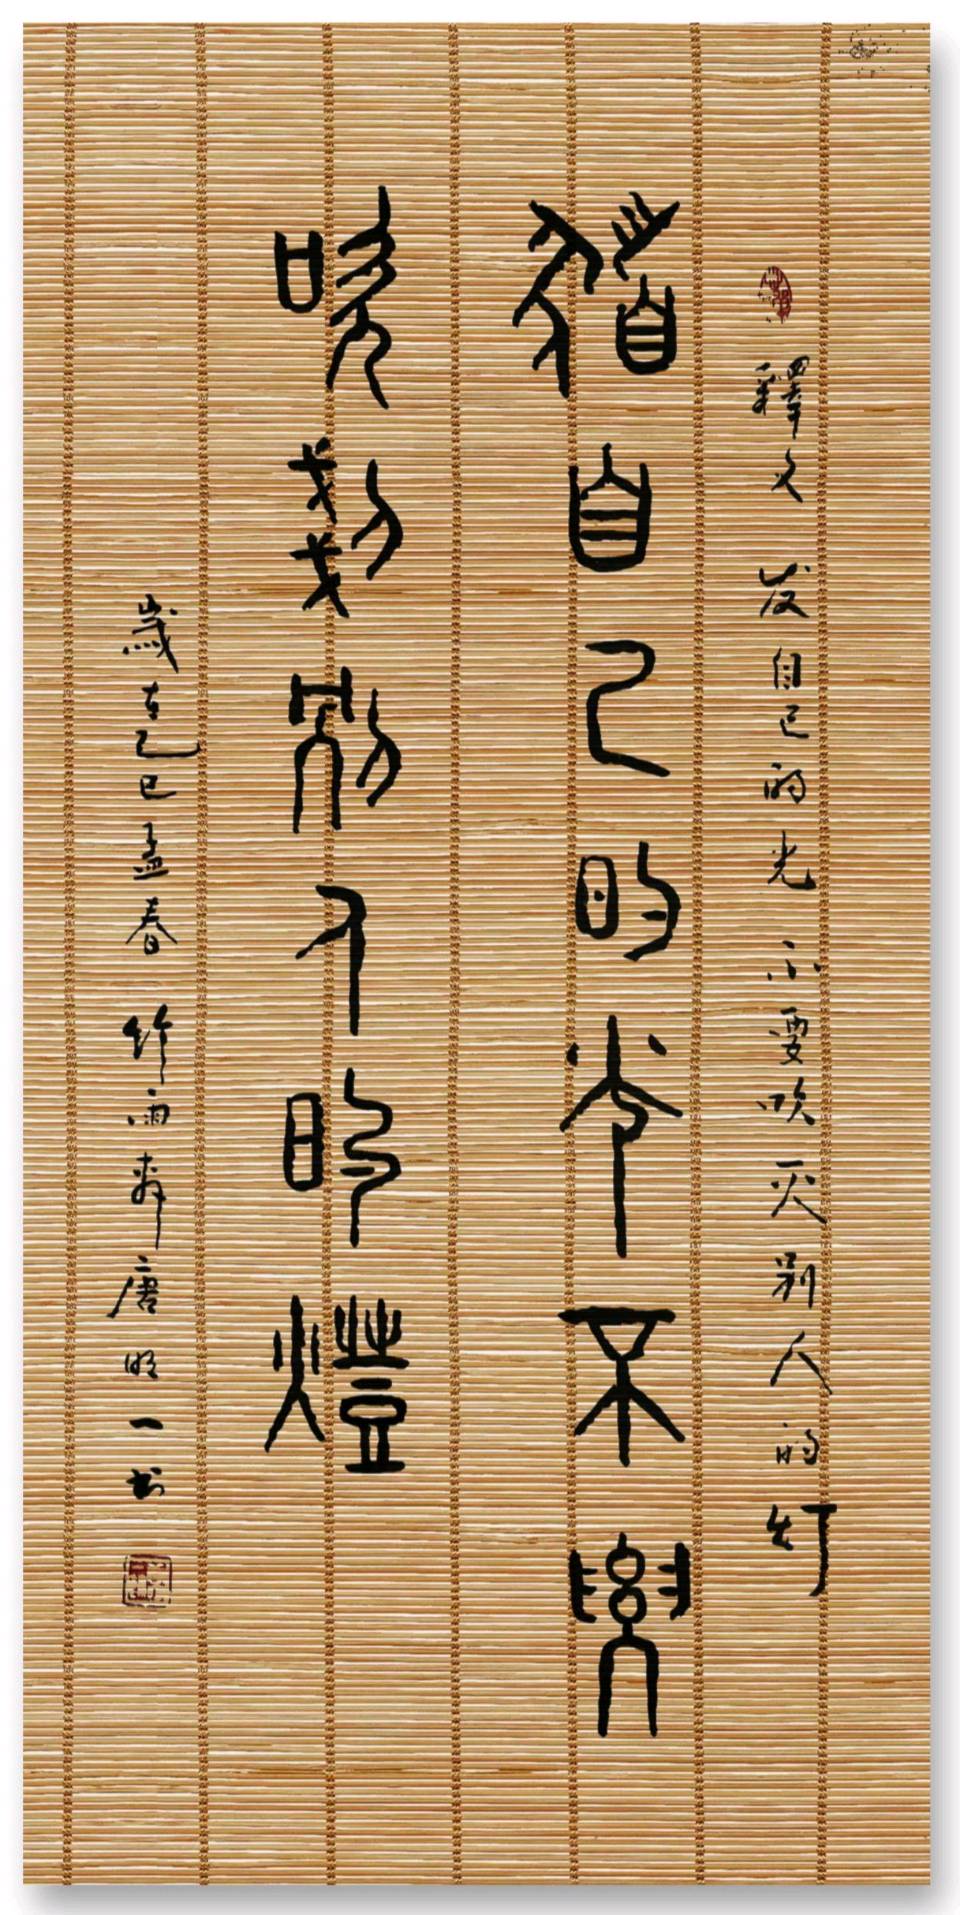 釋文 发自己的光 不要吹灭别人的灯
发自己的光不要
吹灭别人的燈
歲在乙巳孟春 竹雨齋 唐明一书